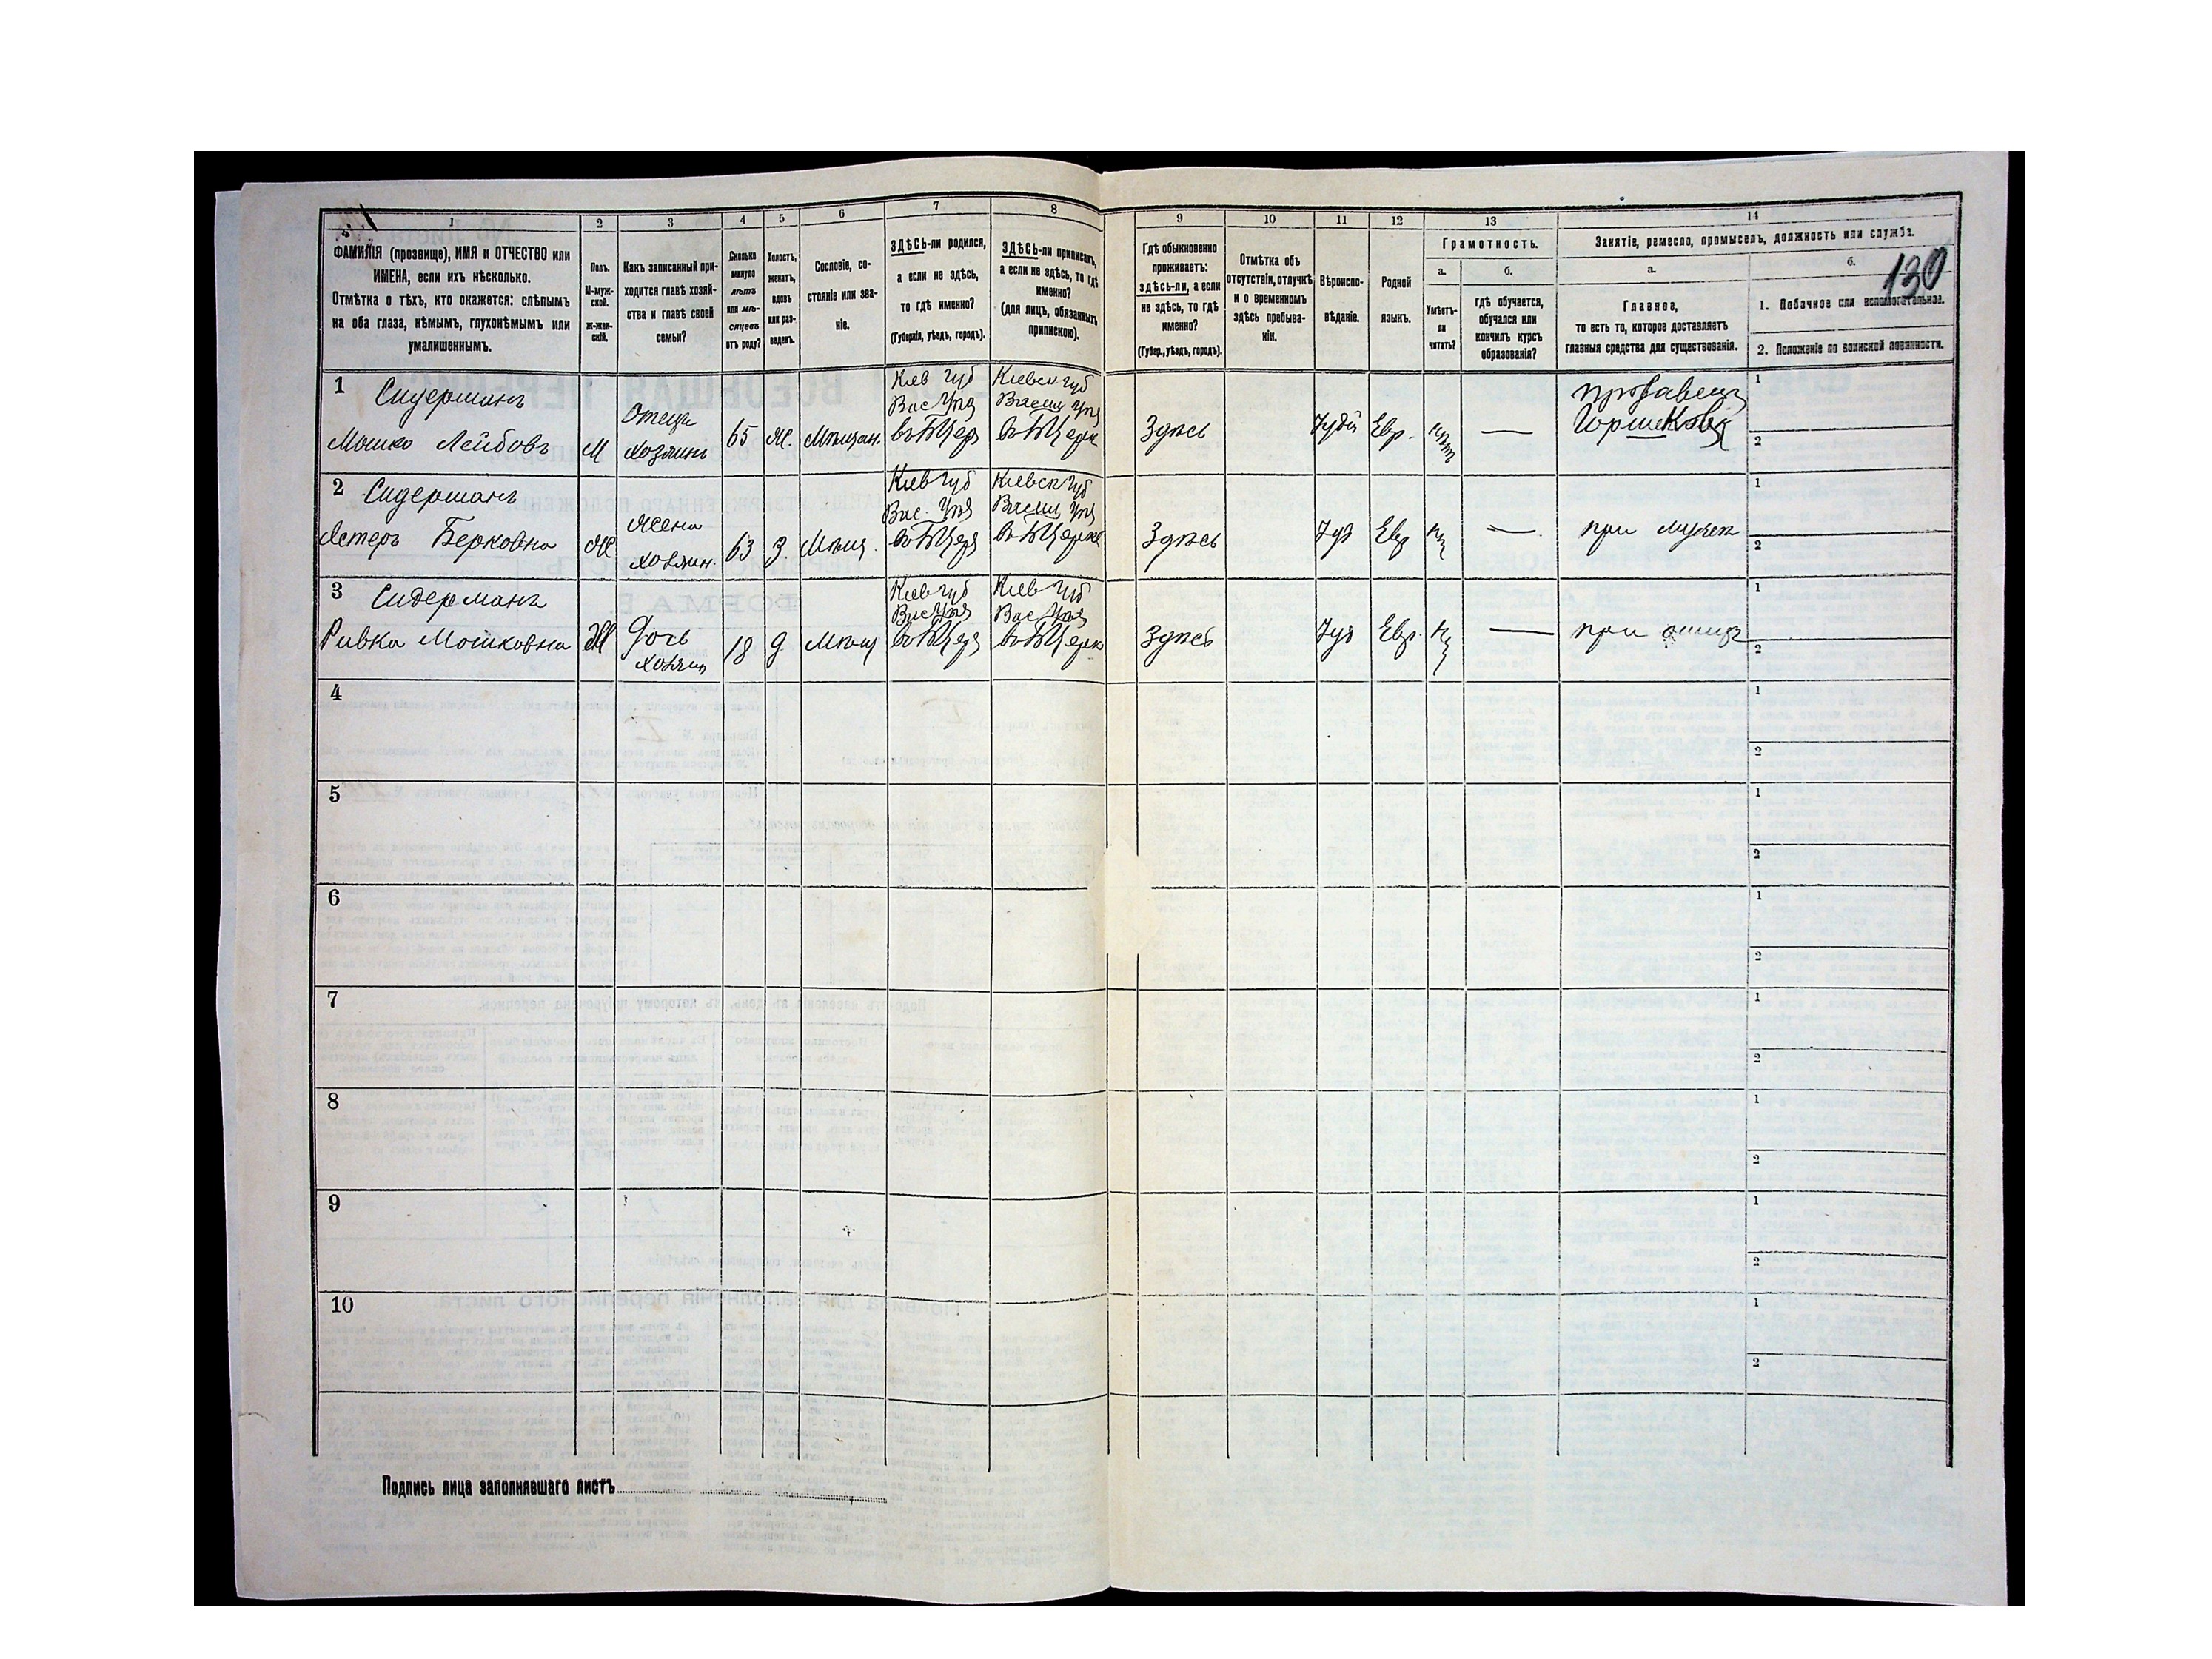 1 2 3 4 5 6 7 8 9 10 11 12 13 14
ФАМИЛІЯ (прозвище), ИМЯ и ОТЧЕСТВО или
ИМЕНА, если ихъ нѣсколько.
Отмѣтка о тѣхъ, кто окажется: слѣпымъ
на оба глаза, нѣмымъ, глухонѣмымъ или
умалишеннымъ.
Полъ.
М-муж-
ской.
Ж-жен-
скій.
Какъ записанный при-
ходится главѣ хозяй-
ства и главѣ своей
семьи?
Сколько
минуло
лѣтъ
или мѣ-
сяцевъ
отъ роду?
Холостъ,
женатъ,
вдовъ
или раз-
веденъ.
Сословіе, со-
стояніе или зва-
ніе.
ЗДѢСЬ-ли родился,
а если не здѣсь,
то гдѣ именно?
(Губернія, уѣздъ, городъ).
ЗДѢСЬ-ли приписанъ,
а если не здѣсь, то гдѣ
именно?
(для лицъ, обязанныхъ
припискою).
Гдѣ обыкновенно
проживаетъ:
здѣсь-ли, а если
не здѣсь, то гдѣ
именно?
(Губер., уѣздъ, городъ).
Отмѣтка объ
отсутствіи, отлучкѣ
и о временномъ
здѣсь пребыва-
ніи.
Вѣроиспо-
вѣданіе.
Родной
языкъ.
Грамотность.
а.
Умѣетъ-
ли
читать?
б.
гдѣ обучается,
обучался или
кончилъ курсъ
образованія?
Занятіе, ремесло, промыселъ, должность или служба.
а.
Главное,
то есть то, которое доставляетъ
главныя средства для существованія.
б.
130
1. Побочное или вспомогательное.
2. Положеніе по воинской повинности.
1 Сидерманъ
Мошко Лейбовъ
М
хозяинъ
65
Ж.
Мѣщан.
Кіев губ
Вас
Кіевск губ
Васил
Здѣсь
Іудей
Евр.
нѣтъ
—
продавецъ
Горшковъ
1
2
2 Сидерманъ
Естеръ Берковна
Ж
Жена
хозяин.
63
З.
Мѣщ.
Кіев губ
Вас.
Кіевск губ
Васил
Здѣсь
Іуд
Евр
—
при мужѣ
1
2
3 Сидерманъ
Ривка Мошковна
Ж
Дочь
хозяин
18
д
Мѣщ
Кіев губ
Вас
Кіев губ
Вас
Здѣсь
Іуд
Евр.
—
при отцѣ
1
2
4
1
2
5
1
2
6
1
2
7
1
2
8
1
2
9
1
2
10
1
2
Подпись лица заполнявшаго листъ